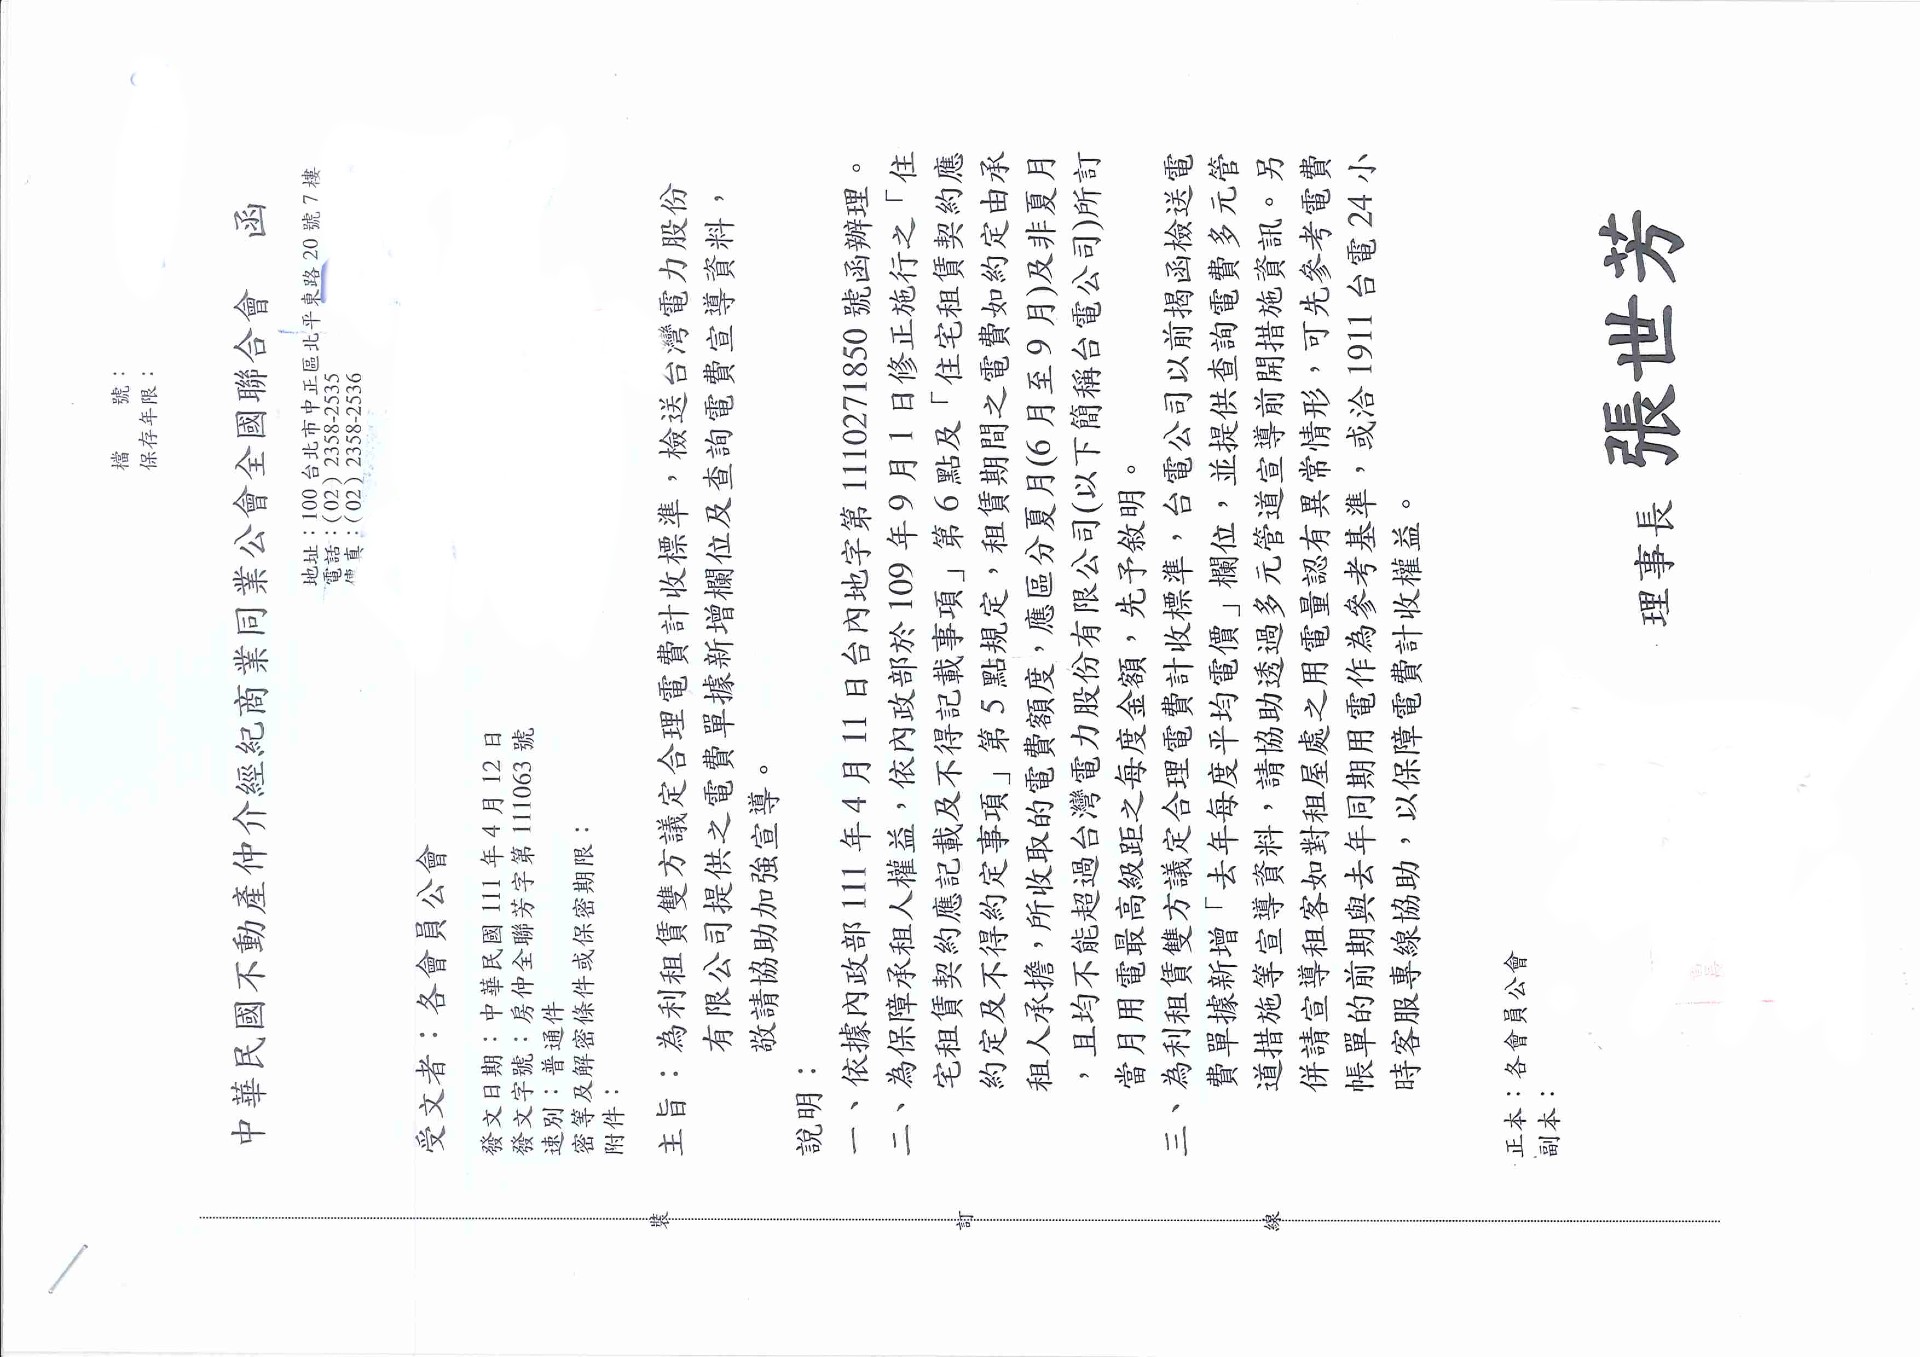 檔　　號：
保存年限：
中華民國不動產仲介經紀商業同業公會全國聯合會　函
地址：100台北市中正區北平東路20號7樓
電話：(02) 2358-2535
傳真：(02) 2358-2536
受文者：各會員公會
發文日期：中華民國111年4月12日
發文字號：房仲全聯芳字第111063號
速別：普通件
密等及解密條件或保密期限：
附件：
主旨：為利租賃雙方議定合理電費計收標準，檢送台灣電力股份
有限公司提供之電費單據新增欄位及查詢電費宣導資料，
敬請協助加強宣導。
說明：
一、依據內政部111年4月11日台內地字第1110271850號函辦理。
二、為保障承租人權益，依內政部於109年9月1日修正施行之「住
宅租賃契約應記載及不得記載事項」第6點及「住宅租賃契約應
約定及不得約定事項」第5點規定，租賃期間之電費如約定由承
租人承擔，所收取的電費額度，應區分夏月(6月至9月)及非夏月
，且均不能超過台灣電力股份有限公司(以下簡稱台電公司)所訂
當月用電最高級距之每度金額，先予敘明。
三、為利租賃雙方議定合理電費計收標準，台電公司以前揭函檢送電
費單據新增「去年每度平均電價」欄位，並提供查詢電費多元管
道措施等宣導資料，請協助透過多元管道宣導前開措施資訊。另
併請宣導租客如對租屋處之用電量認有異常情形，可先參考電費
帳單的前期與去年同期用電作為參考基準，或洽1911台電24小
時客服專線協助，以保障電費計收權益。
正本：各會員公會
副本：
理事長 張世芳
裝
訂
線